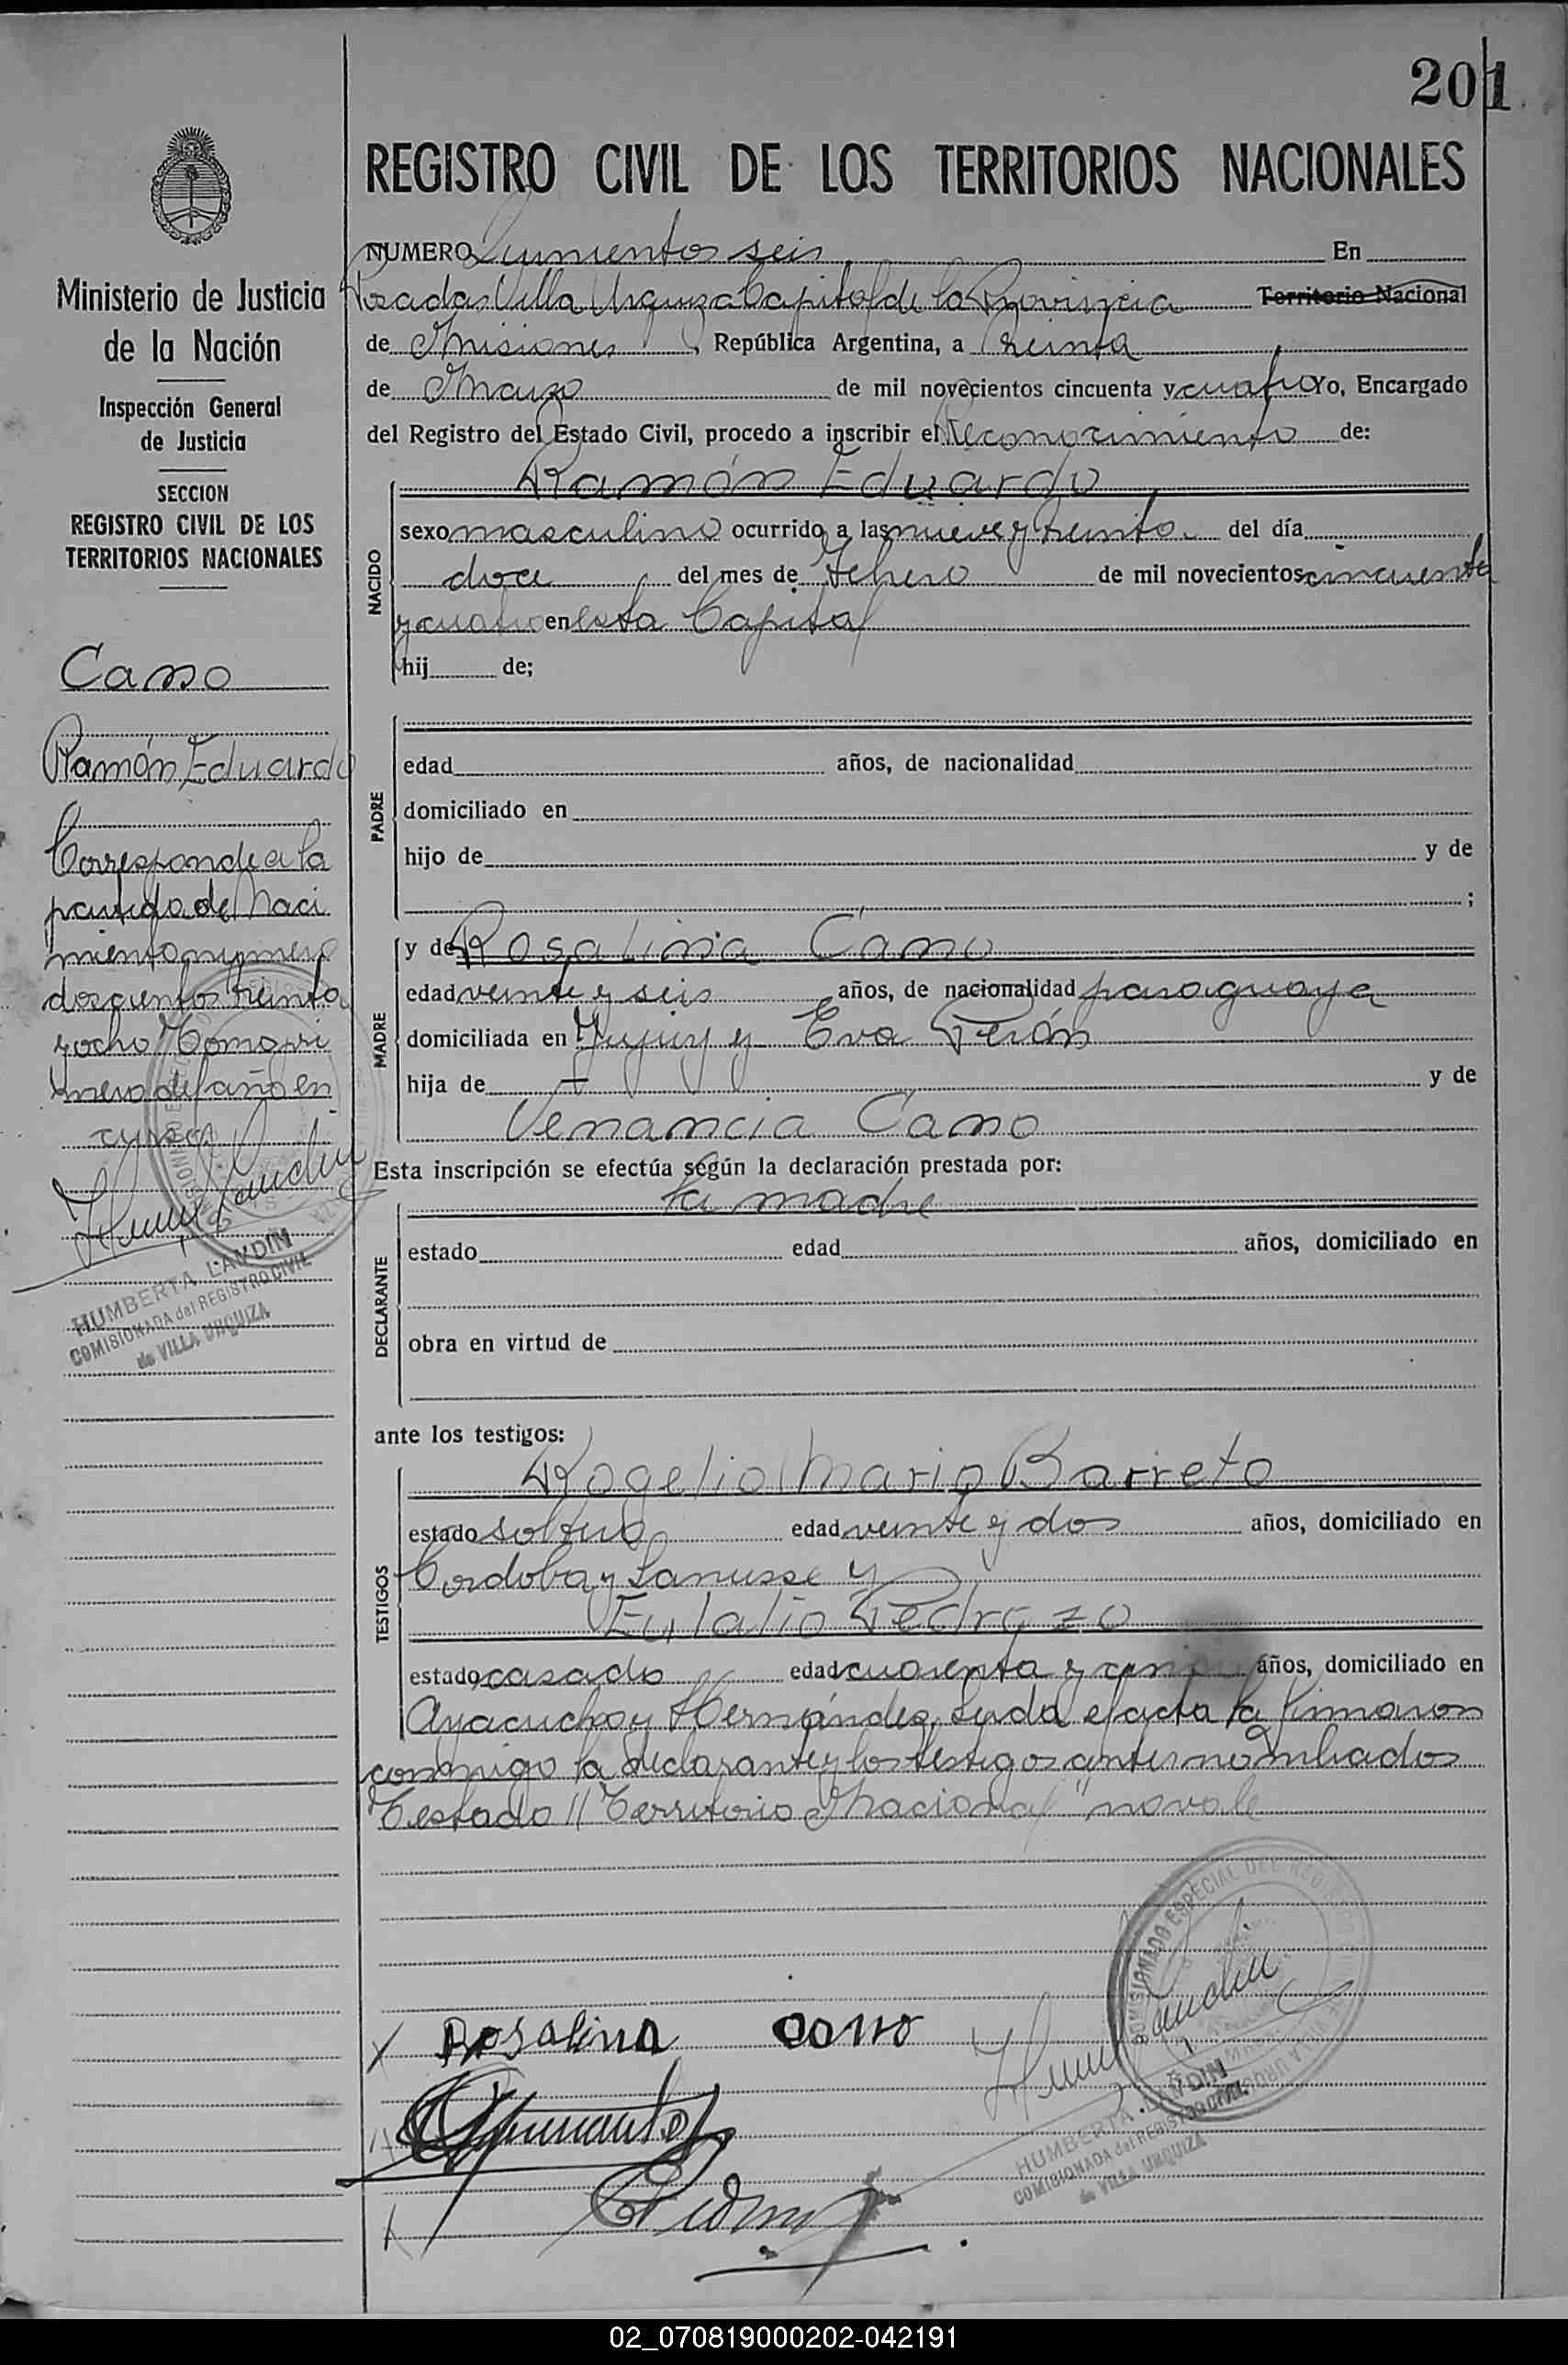 201
REGISTRO CIVIL DE LOS TERRITORIOS NACIONALES
Ministerio de Justicia
de la Nación
Inspección General
de Justicia
SECCION
REGISTRO CIVIL DE LOS
TERRITORIOS NACIONALES
Cano
Ramón Eduardo
Corresponde a la
partida de Naci
miento numero
doscientos treinta
y ocho Tomo pri
mero del año en
curso
HUMBERTA LANDIN
COMISIONADA del REGISTRO CIVIL
de VILLA URQUIZA
NUMERO seis En
Posadas Villa Urquiza Capital de la Provincia Territorio Nacional
de Misiones, República Argentina, a treinta
de Marzo de mil novecientos cincuenta y cuatro Yo, Encargado
del Registro del Estado Civil, procedo a inscribir el Reconocimiento de:
Ramón Eduardo
NACIDO
sexo masculino ocurrido a las nueve y treinta del día
doce del mes de Febrero de mil novecientos cincuenta
y cuatro en esta Capital
hij de;
PADRE
edad años, de nacionalidad
domiciliado en
hijo de y de
;
MADRE
y de Rosalina Cano
edad veinte y seis años, de nacionalidad paraguaya
domiciliada en Jujuy y Eva Perón
hija de y de
Venancia Cano
Esta inscripción se efectúa según la declaración prestada por:
la madre
DECLARANTE
estado edad años, domiciliado en
obra en virtud de
ante los testigos:
TESTIGOS
Rogelio Mario Barreto
estado soltero edad veinte y dos años, domiciliado en
Cordoba y Lanusse y
Eulalio Pedrozo
estado casado edad cuarenta y años, domiciliado en
Ayacucho y Hernández, Leyda el acta la firmaron
conmigo la declarante y los testigos antes nombrados
Testado "Territorio Nacional" no vale
X Rosalina cano
COMISIONADO ESPECIAL DEL
HUMBERTA LANDIN
COMISIONADA del REGISTRO CIVIL
de VILLA URQUIZA
02_070819000202-042191